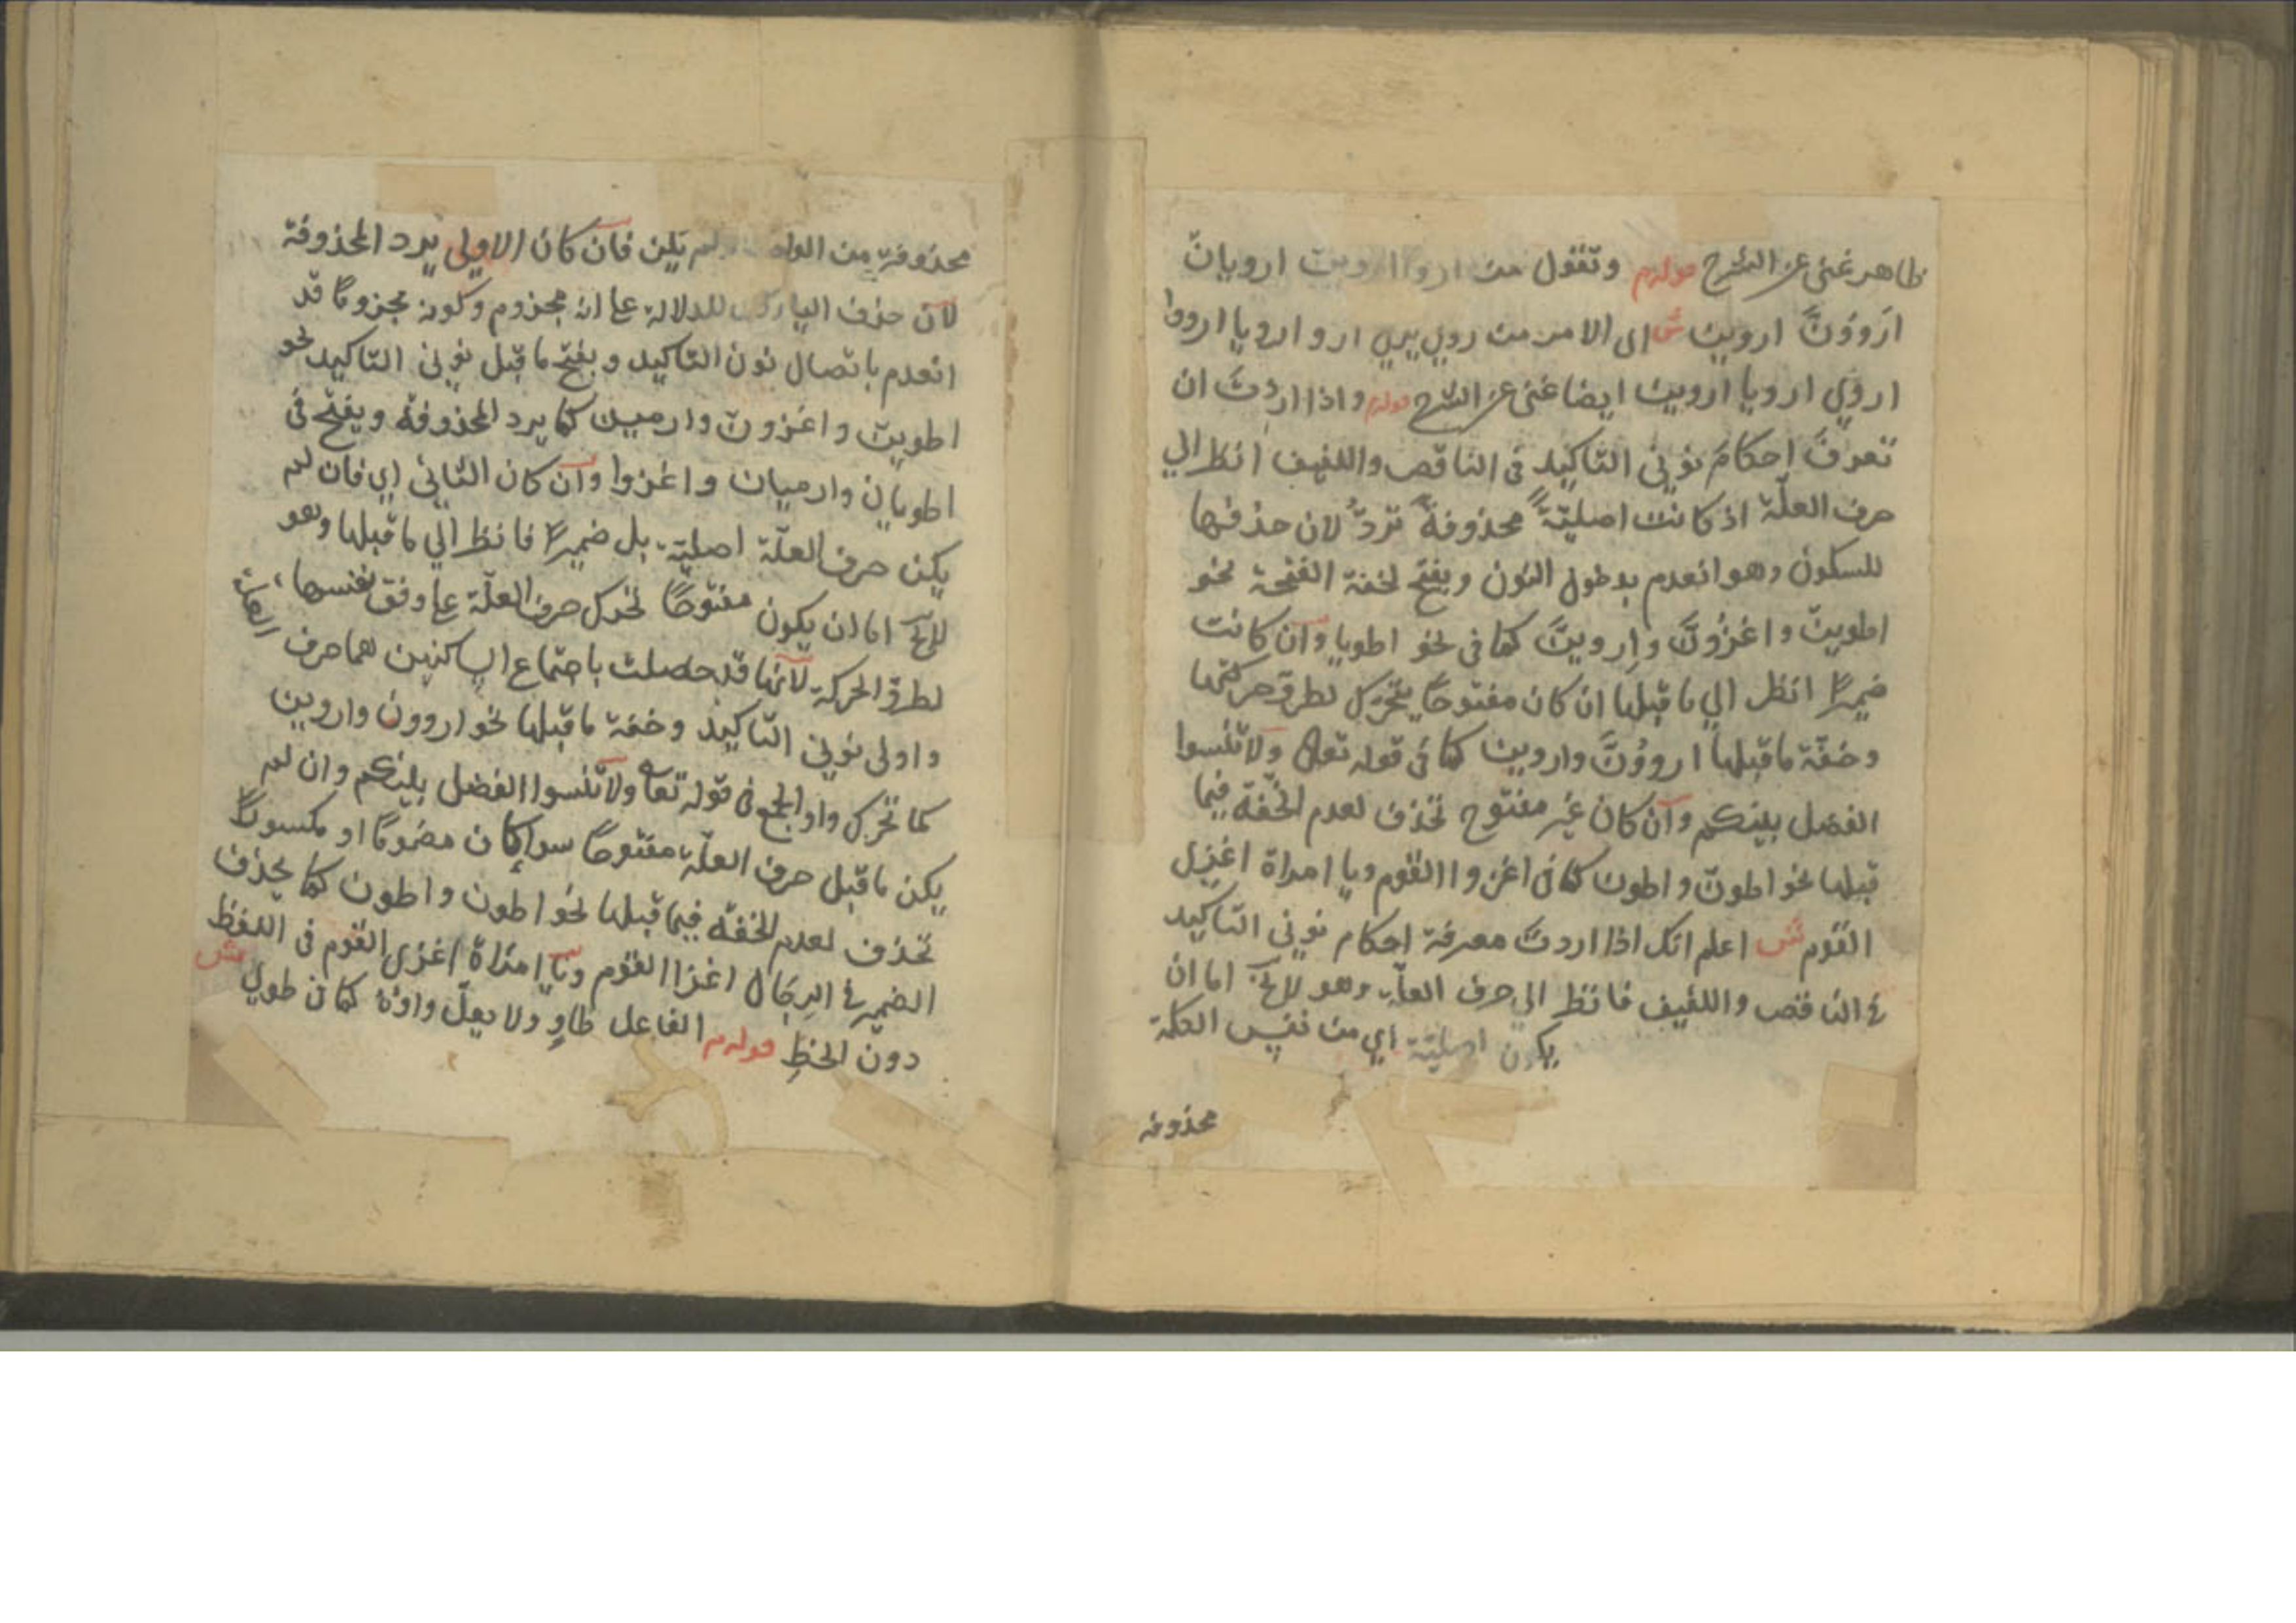 ظاهر غنى عن الشرح قوله وتقول من اروا اروين ارويان
ارَووُنَّ اروين ش اى الامر من روي يروي ارو ارويا ارووا
اروي ارويا اروين ايضا غنى عن الشرح قوله واذا اردتَ ان
تعرفَ احكامَ نوني التأكيد فى الناقص واللفيف انظر الي
حرف العلّة اذ كانت اصليّةً محذوفةً تردُّ لان حذفها
للسكون وهو انعدم بدخول النون ويفتح لخفة الفتحة نحو
اطوينّ واغزُونَّ وارِوينَّ كما فى نحو اطويا وان كانت
ضميرًا انظر الي ما قبلها ان كان مفتوحًا يحرّك لطروّ حركتها
وخفّة ما قبلها اروَوُنَّ واروين كما فى قوله تعالى ولا تنسوا
الفضل بينكم وان كان غير مفتوح تحذف لعدم الخفّة فيما
قبلها نحو اطونّ واطون كما فى اغزوا القوم ويا امراة اغزى
القوم ش اعلم انك اذا اردتَ معرفة احكام نوني التاكيد
فى الناقص واللفيف فانظر الي حرف العلّة وهو اما ان
يكون اصليّة اي من نفس الكلمة
محذوفه
محذوفة من ولم تكن فان كان الاولى يرد المحذوفة
لان حذف الياء للدلالة على انه مجزوم وكونه مجزومًا قد
انعدم باتصال نون التاكيد وبفتح ما قبل نوني التاكيد نحو
اطوينّ واغزونّ وارمين كما يرد المحذوفة ويفتح فى
اطويان وارميان واغزوا وان كان الثانى اي فان لم
يكن حرف العلّة اصليّة بل ضميرًا فانظر الي ما قبلها وهو
اما ان يكون مفتوحًا تحرك حرف العلّة على وفق نفسها
لطروّ الحركة لانها قد حصلت باجتماع الساكنين هما حرف العلة
واولى نوني التاكيد وخفة ما قبلها نحو ارووُن واروين
كما تحرك واو الجمع فى قوله تعا ولا تنسوا الفضل بينكم وان لم
يكن ما قبل حرف العلّة مفتوحًا سواء كان مضمومًا او مكسورًا
تحذف لعدم الخفة فيما قبلها نحو اطون واطون كما يحذف
الضمير فى الرجال اغزا القوم ويا امراة اغزى القوم فى اللفظ
دون الخطِ قوله الفاعل طاوٍ ولا يعلّ واوه كما فى طوي ش